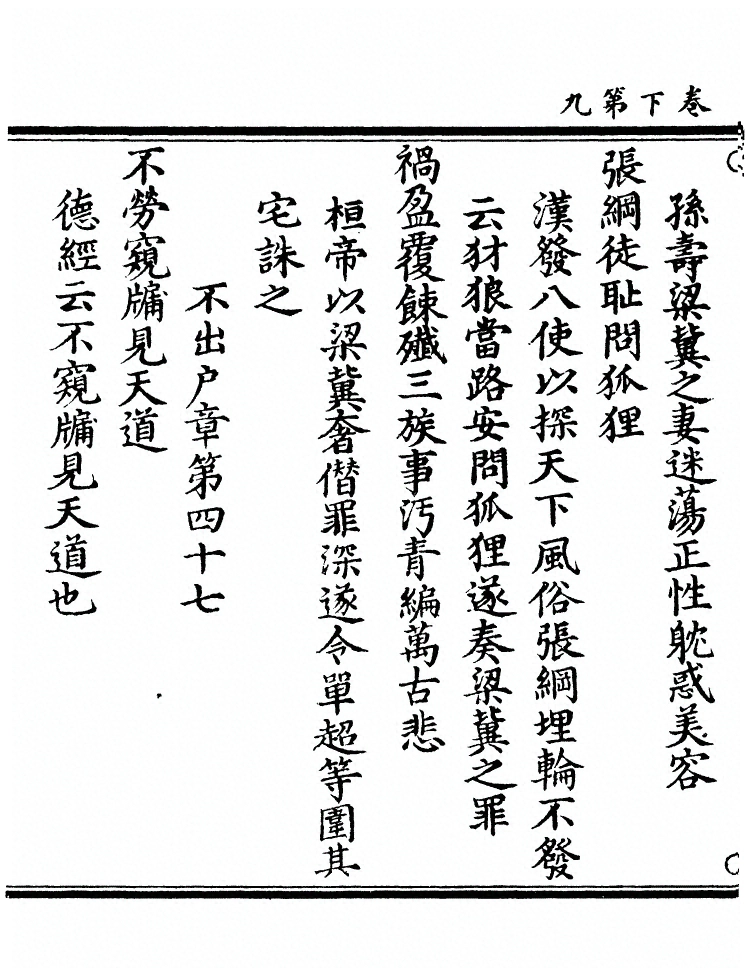 卷下第九
孫壽梁冀之妻迷蕩正性躭惑美容
張綱徒耻問狐狸
漢發八使以探天下風俗張綱埋輪不發
云犲狼當路安問狐狸遂奏梁冀之罪
禍盈覆餗殲三族事汚青編萬古悲
桓帝以梁冀奢僭罪深遂令單超等圍其
宅誅之
不出户章第四十七
不勞窺牖見天道
德經云不窺牖見天道也